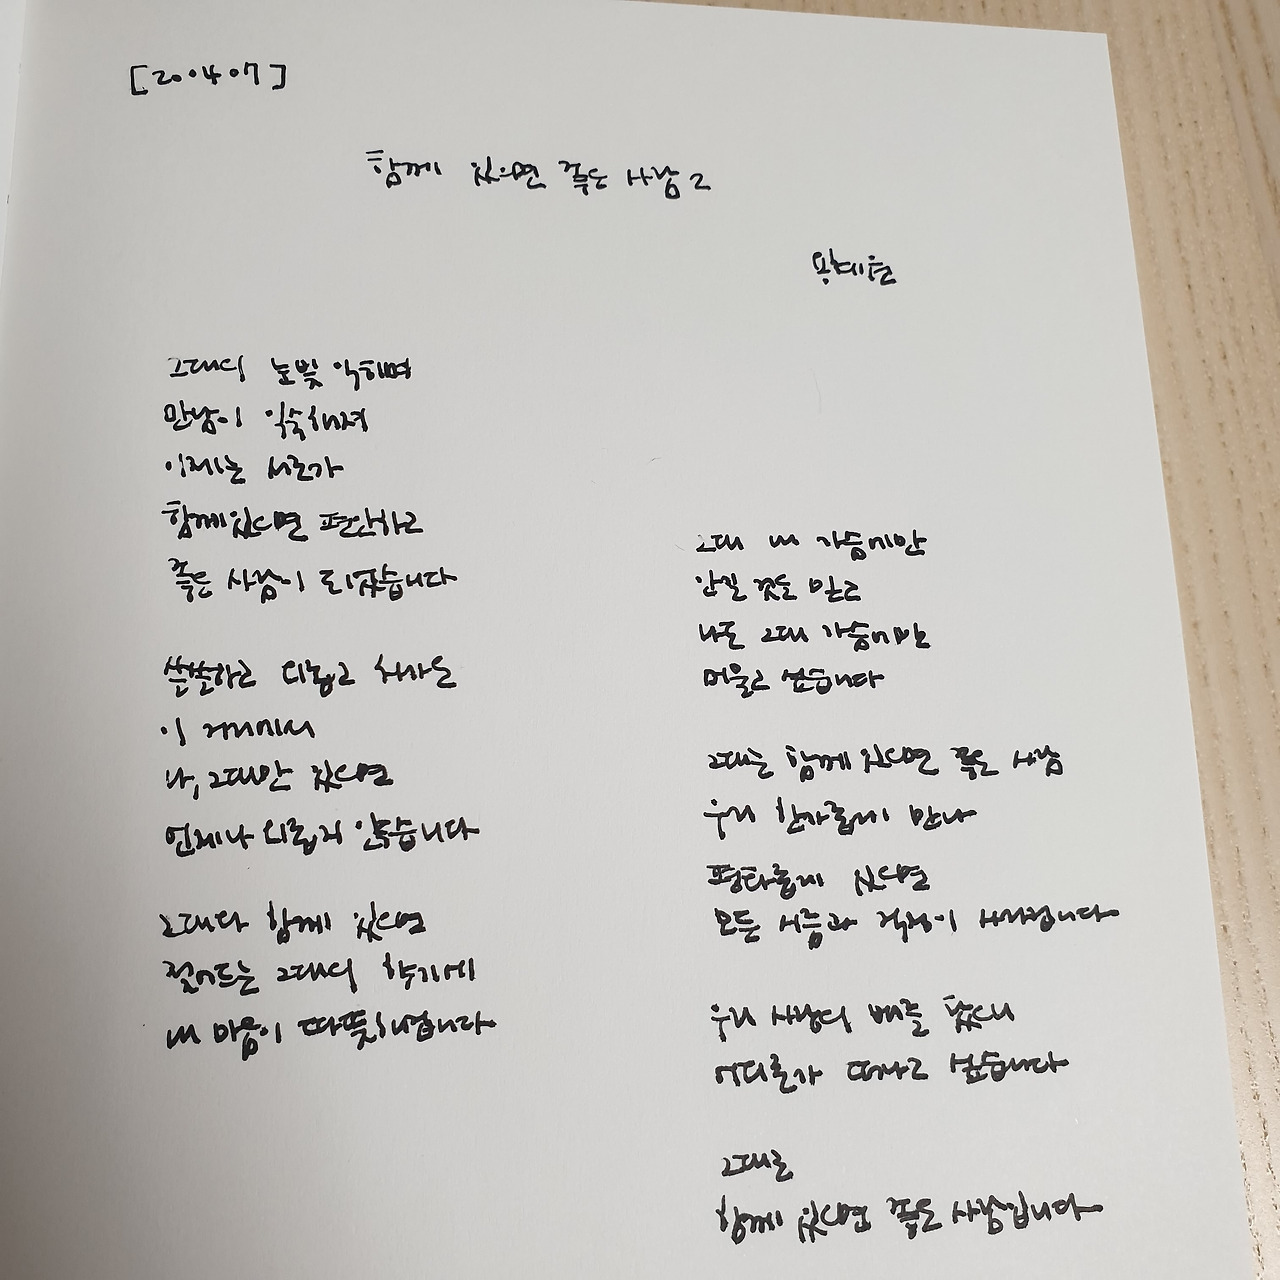 [200407]
함께 있으면 좋은 사람 2
용혜원
그대의 눈빛 익히며
만남이 익숙해져
이제는 서로가
함께 있으면 편안하고
좋은 사람이 되었습니다
쓸쓸하고 외롭고 차가운
이 거리에서
나, 그대만 있으면
언제나 외롭지 않습니다
그대와 함께 있으면
젖어드는 그대의 향기에
내 마음이 따뜻해집니다
그대 내 가슴에만
안길 것을 믿고
나도 그대 가슴에만
머물고 싶습니다
그대는 함께 있으면 좋은 사람
우리 한가롭게 만나
평화롭게 있으면
모든 시름과 걱정이 사라집니다
우리 사랑의 배를 탔으니
어디론가 떠나고 싶습니다
그대는
함께 있으면 좋은 사람입니다